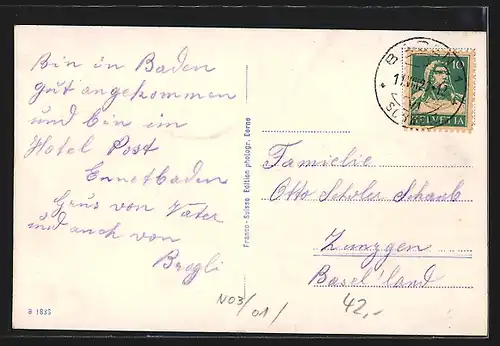 Bin in Baden
gut angekommen
und bin im
Hotel Post
Ennetbaden
Grus von Vater
und auch von
Brogli
Franco-Suisse Edition photogr. Berne
10
HELVETIA
Familie
Otto Scholer Schaub
Zunzgen
Basel'land
B 1835
N03/
01/
42,-